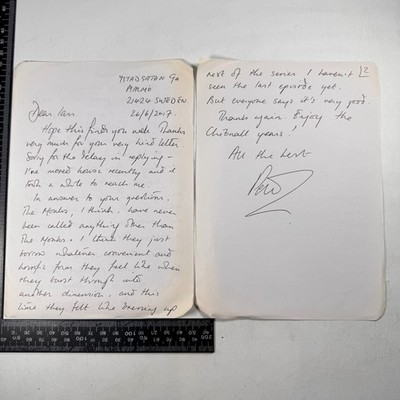 YSTADSGATAN 9A
MALMÖ
21424 SWEDEN
26/6/2017.
Dear Ian,
Hope this finds you well. Thanks
very much for your very kind letter.
Sorry for the delay in replying –
I've moved house recently and it
took a while to reach me.
In answer to your questions.
The Monks, I think, have never
been called anything other than
The Monks. I think they just
borrow whatever convenient and
horrific form they feel like when
they burst through into
another dimension, and this
time they felt like dressing up
2
rest of the series I haven't
seen the last episode yet.
But everyone says it's very good.
Thanks again. Enjoy the
Chibnall years!
All the best